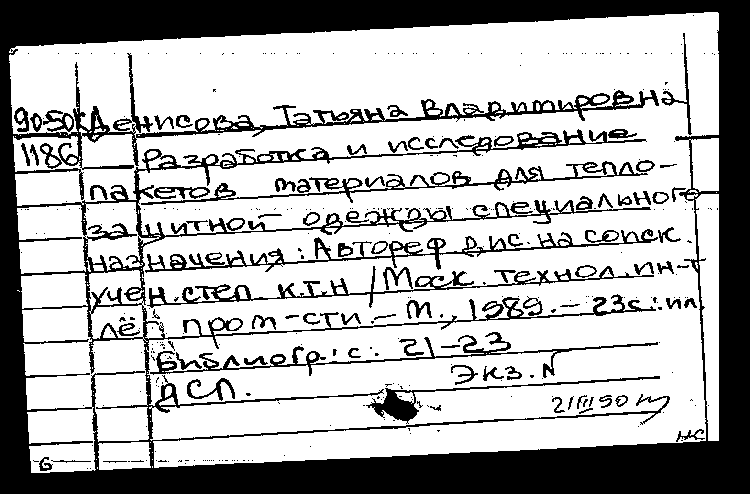 90-50к Денисова, Татьяна Владимировна
1186 Разработка и исследование
пакетов материалов для тепло-
защитной одежды специального
назначения: Автореф дис. на соиск.
учен. степ. к.т.н / Моск. технол. ин-т
лёг пром-сти. – М., 1989. – 23с.: ил
Библиогр.: с. 21-23
ДСП. Экз. N
21III90
6 НС